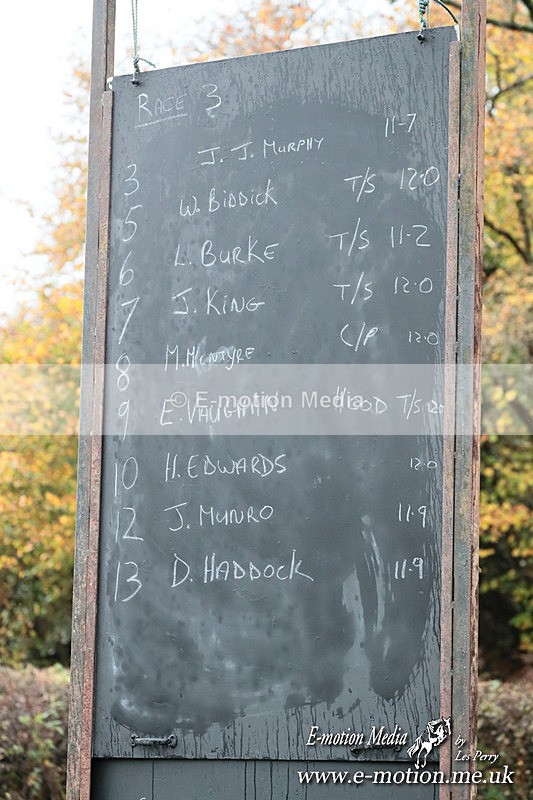 RACE 3
3 J. J. MURPHY 11-7
5 W. BIDDICK T/S 12.0
6 L. BURKE T/S 11-2
7 J. KING T/S 12.0
8 M. MCINTYRE C/P 12.0
9 E. VAUGHAN HOOD T/S 12.0
10 H. EDWARDS 12.0
12 J. MUNRO 11.9
13 D. HADDOCK 11.9
© E-motion Media
E-motion Media by Les Perry
www.e-motion.me.uk